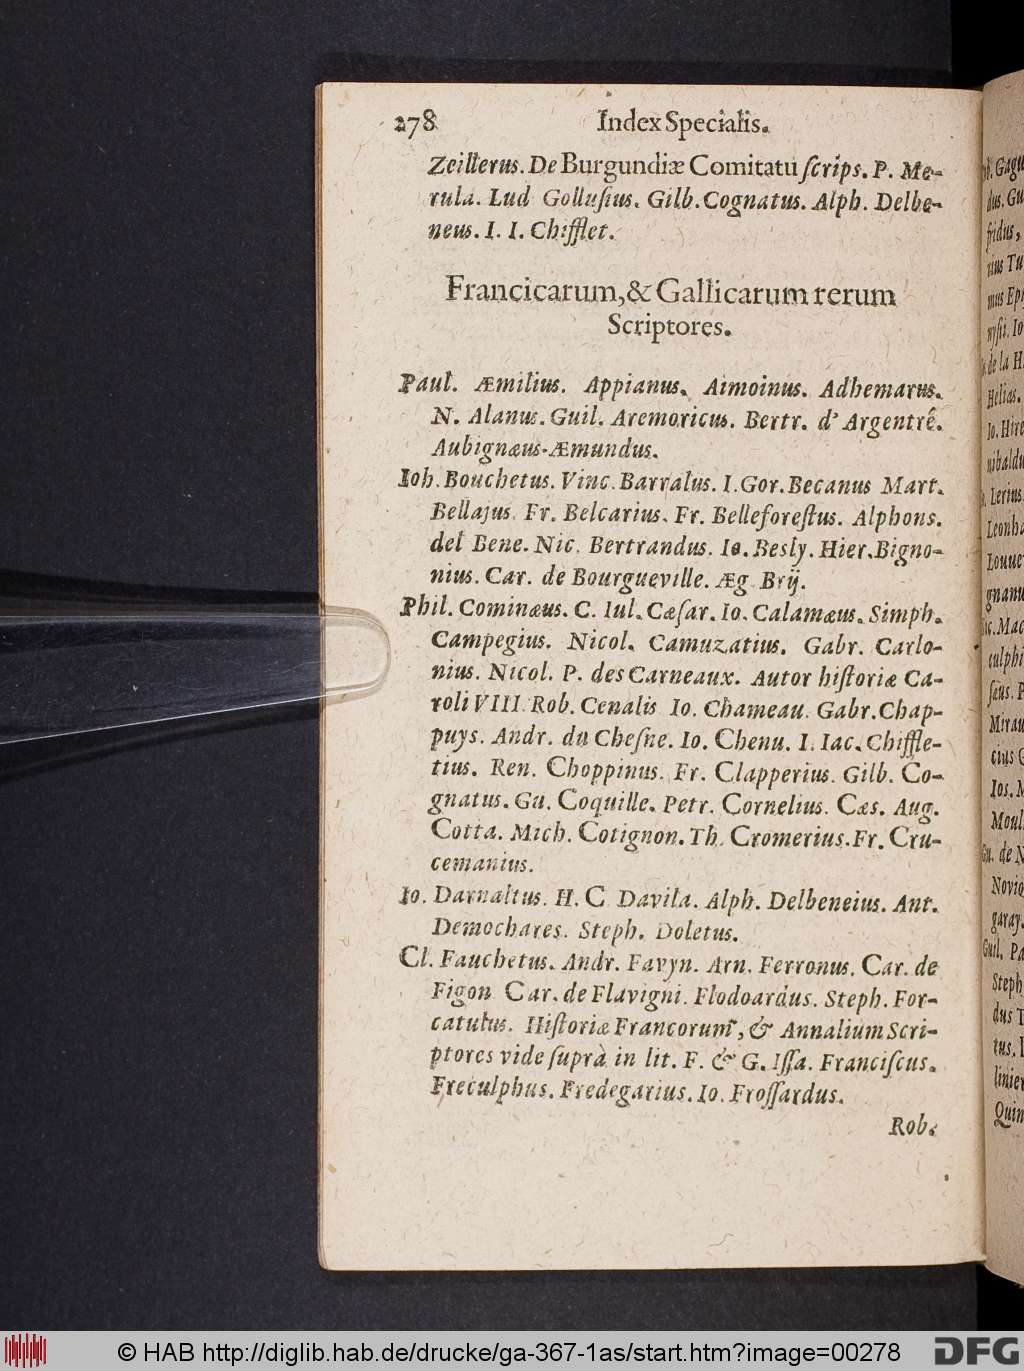 278 Index Specialis.
Zeillerus. De Burgundiæ Comitatu ſcrips. P. Me-
rula. Lud Golluſius. Gilb. Cognatus. Alph. Delbe-
neus. I. I. Chifflet.
Francicarum, & Gallicarum rerum
Scriptores.
Paul. Æmilius. Appianus. Aimoinus. Adhemarus.
N. Alanus. Guil. Aremoricus. Bertr. d' Argentré.
Aubignæus. Æmundus.
Ioh. Bouchetus. Vinc. Barralus. I. Gor. Becanus Mart.
Bellajus. Fr. Belcarius. Fr. Belleforeſtus. Alphons.
del Bene. Nic. Bertrandus. Io. Besly. Hier. Bigno-
nius. Car. de Bourgueville. Æg. Brij.
Phil. Cominæus. C. Iul. Cæſar. Io. Calamæus. Simph.
Campegius. Nicol. Camuzatius. Gabr. Carlo-
nius. Nicol. P. des Carneaux. Autor hiſtoriæ Ca-
roli VIII. Rob. Cenalis Io. Chameau. Gabr. Chap-
puys. Andr. du Cheſne. Io. Chenu. I. Iac. Chiffle-
tius. Ren. Choppinus. Fr. Clapperius. Gilb. Co-
gnatus. Gu. Coquille. Petr. Cornelius. Cæs. Aug.
Cotta. Mich. Cotignon. Th. Cromerius. Fr. Cru-
cemanius.
Io. Darnaltus. H. C Davila. Alph. Delbeneius. Ant.
Demochares. Steph. Doletus.
Cl. Fauchetus. Andr. Favyn. Arn. Ferronus. Car. de
Figon Car. de Flavigni. Flodoardus. Steph. For-
catulus. Hiſtoriæ Francorum, & Annalium Scri-
ptores vide ſuprà in lit. F. & G. Iſſa. Franciſcus.
Freculphus. Fredegarius. Io. Froſſardus.
Rob.
© HAB http://diglib.hab.de/drucke/ga-367-1as/start.htm?image=00278
DFG